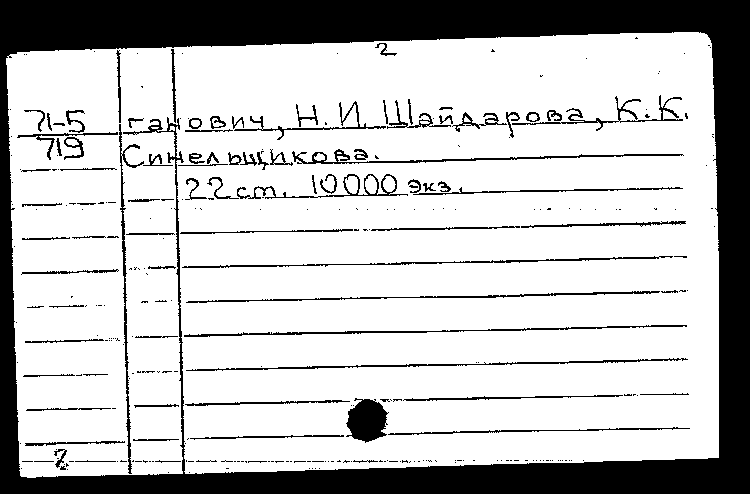 2
71-5 ганович, Н.И. Шайдарова, К.К.
719 Синельщикова.
22 см. 10000 экз.
8